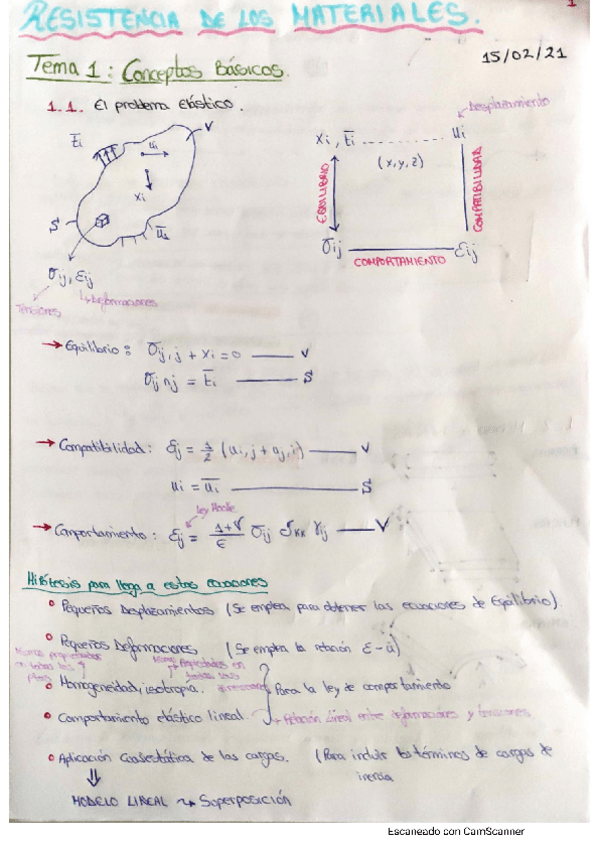 RESISTENCIA DE LOS MATERIALES.
1
15/02/21
Tema 1: Conceptos Básicos.
1.1. El problema Elástico.
Desplazamiento
t̄i
V
ui
Xi
S
ūi
σij, εij
Tensiones
Deformaciones
Xi, t̄i
ui
(x,y,z)
EQUILIBRIO
COMPATIBILIDAD
σij
εij
COMPORTAMIENTO
→ Equilibrio: σij,j + Xi = 0 — V
σij nj = t̄i — S
→ Compatibilidad: εij = 1/2 (ui,j + uj,i) — V
ui = ūi — S
Ley Hooke
→ Comportamiento: εij = 1+ν/E σij σkk γij — V
Hipótesis para llega a estas ecuaciones
Pequeños Desplazamientos (Se emplea para obtener las ecuaciones de Equilibrio)
Pequeñas Deformaciones (Se emplea la relación ε-u)
propiedades
Mismas Propiedades en
todas las
Homogeneidad, isotropía.
direcciones
Para la ley de comportamiento
Comportamiento elástico lineal.
→ Relación Lineal entre deformaciones y tensiones
Aplicación Cuasiestática de las cargas. (Para incluir los términos de cargas de
inercia
MODELO LINEAL → Superposición
Escaneado con CamScanner